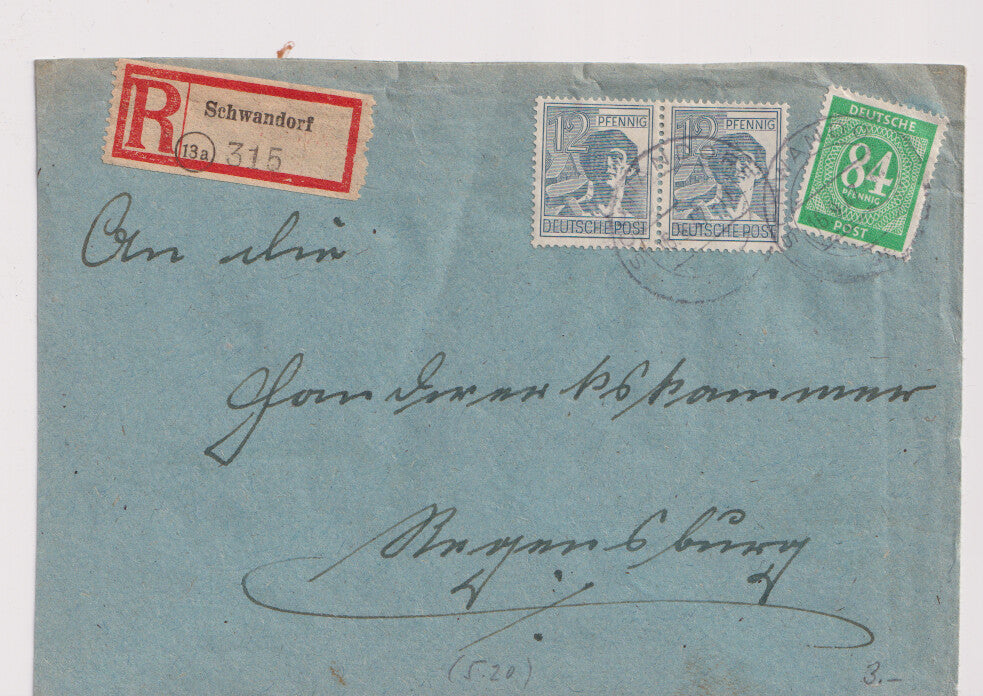 R Schwandorf
(13a) 315
12 PFENNIG
DEUTSCHE POST
12 PFENNIG
DEUTSCHE POST
DEUTSCHE
84
PFENNIG
POST
An die
Handwerkskammer
Regensburg
(5.20)
3.-